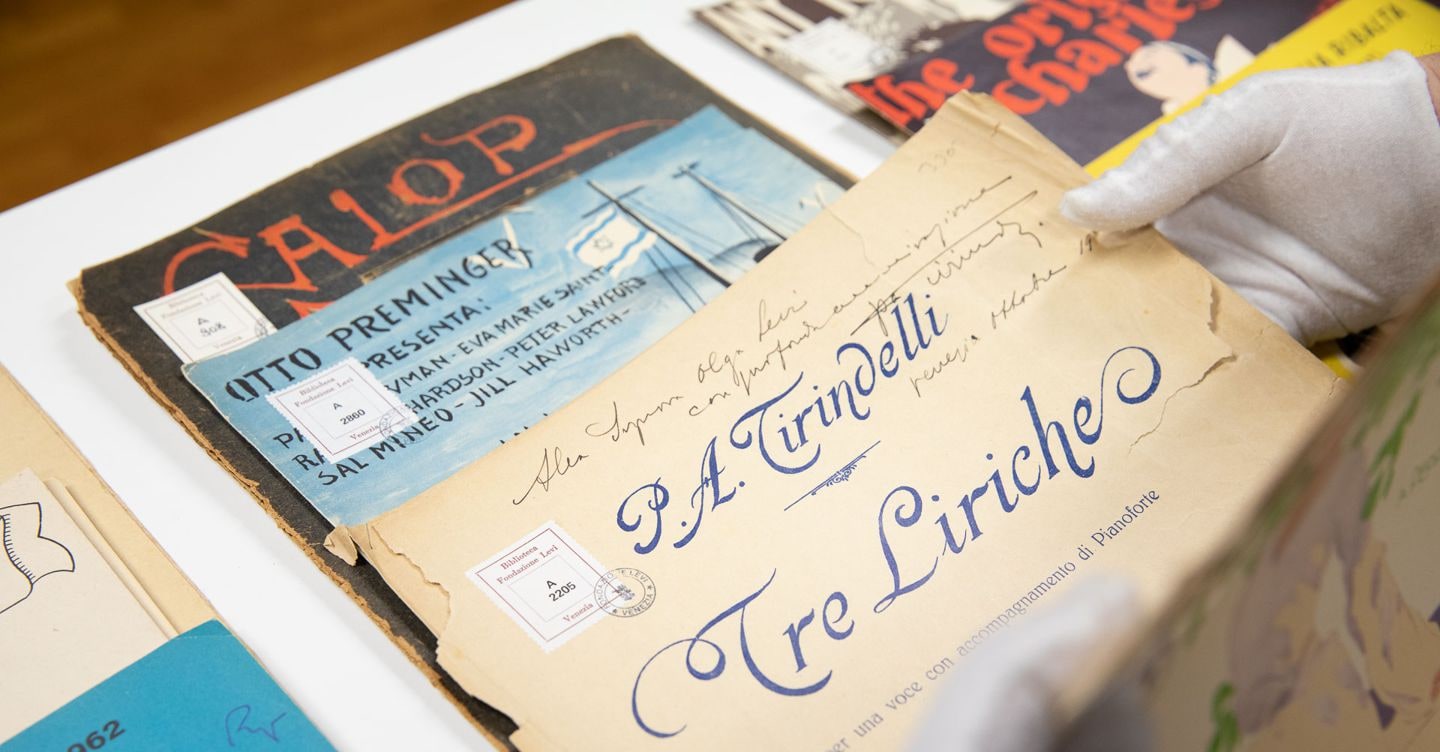 the orig
charles
RIBALTA
GALOP
Biblioteca
Fondazione Levi
A
908
Venezia
OTTO PREMINGER
PRESENTA:
MAN - EVA MARIE SAINT
HARDSON - PETER LAWFORD
SAL MINEO - JILL HAWORTH -
Biblioteca
Fondazione Levi
A
2860
Venezia
Alla Signora Olga Levi
con profonda ammirazione
PA Tirindelli
Venezia Ottobre 19
P. A. Tirindelli
Tre Liriche
per una voce con accompagnamento di Pianoforte
Biblioteca
Fondazione Levi
A
2205
Venezia
FONDAZIONE LEVI
VENEZIA
962